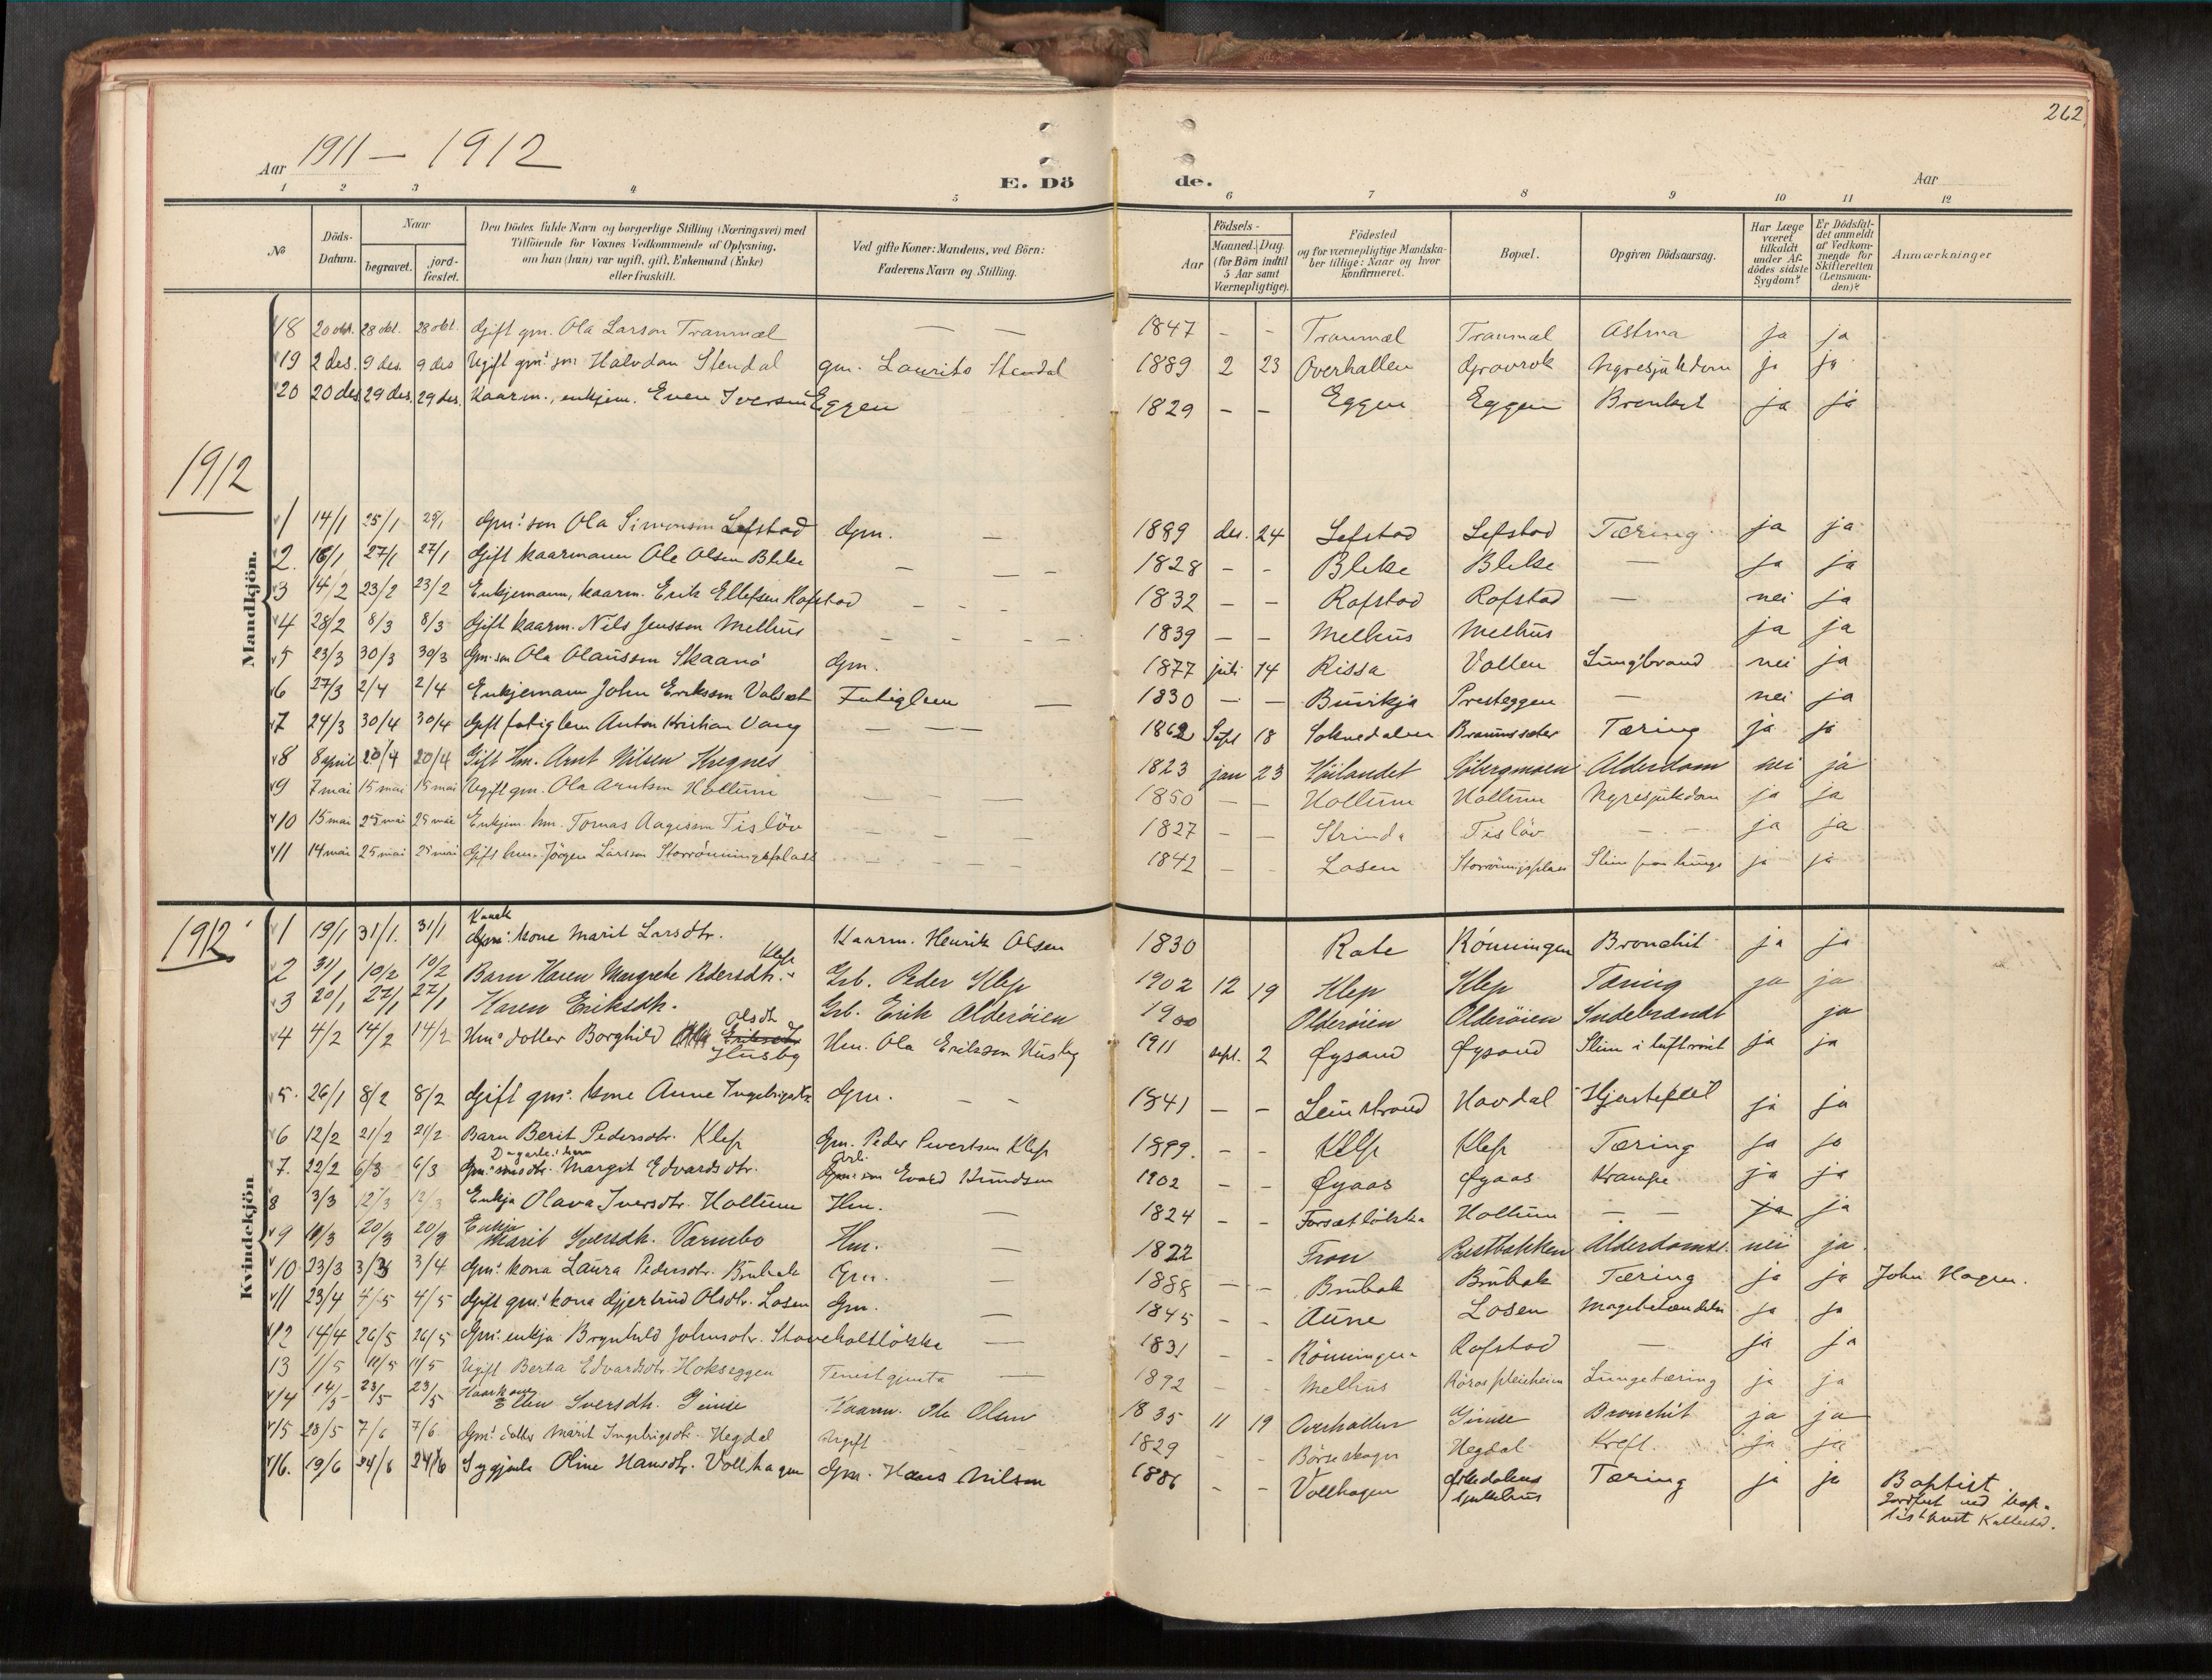 262
Aar 1911 — 1912
E. Dö de.
Aar
1 2 3 4 5 6 7 8 9 10 11 12
No
Döds-Datum.
Naar begravet. jord-fæstet.
Den Dödes fulde Navn og borgerlige Stilling (Næringsvei) med
Tilföiende for Voxnes Vedkommende af Oplysning,
om han (hun) var ugift, gift, Enkemand (Enke)
eller fraskilt.
Ved gifte Koner: Mandens, ved Börn:
Faderens Navn og Stilling.
Aar
Födsels-
Maaned. Dag.
(for Börn indtil
5 Aar samt
Værnepligtige).
Födested
og for værnepligtige Mandska-
ber tillige: Naar og hvor
konfirmeret.
Bopæl.
Opgiven Dödsaarsag.
Har Læge
været
tilkaldt
under Af-
dödes sidste
Sygdom?
Er Dödsfal-
det anmeldt
af Vedkom-
mende for
Skifteretten
(Lensman-
den)?
Anmærkninger
18 20 okt. 28 okt. 28 okt. Gift gm. Ola Larson Tranmæl — — 1847 - - Tranmæl Tranmæl Astma ja ja
19 2 des. 9 des. 9 des Ugift gm.s son Halvdan Stendal gm. Laurits Stendal 1889 2 23 Overhallen Gravrok Nyresjukdom ja ja
20 20 des 29 des. 29 des. Kaarm., enkjem. Even Iversen Eggen 1829 - - Eggen Eggen Bronkit ja ja
1912
Mandkjön.
1 14/1 25/1 25/1 Gm.s son Ola Simonson Lefstad Gm. — 1889 des. 24 Lefstad Lefstad Tæring ja ja
2. 18/1 27/1 27/1 Gift kaarmann Ole Olsen Bleke — — — 1828 - - Bleke Bleke — ja ja
3 14/2 23/2 23/2 Enkjemann, kaarm. Erik Ellefsen Rofstad - - - 1832 - - Rofstad Rofstad — nei ja
4 28/2 8/3 8/3 Gift kaarm. Nils Jensson Melhus - - - - 1839 - - Melhus Melhus ja ja
5 23/3 30/3 30/3 Gm. son Ola Olausson Skaanö Gm. 1877 juli 14 Rissa Vollen Lungebrand nei ja
6 27/3 2/4 2/4 Enkjemann John Eriksson Valset Fatiglem — 1830 - - Buvikja Presteggen — nei ja
7 24/3 30/4 30/4 Gift fatiglem Anton Kristian Vang — — — 1862 Sept 18 Soknedalen Tæring ja ja
8 8 april 20/4 20/4 Gift Hm. Arnt Nilsen Kregnes 1823 jan 23 Höilandet Söbergmoen Alderdom nei ja
9 7 mai 15 mai 15 mai Ugift gm. Ola Arntsen Hollum — — — 1850 - - Hollum Hollum Nyresjukdom ja ja
10 15 mai 25 mai 25 mai Enkjem. hm. Tomas Aagesen Tislöv — — — 1827 - - Strinda Tislöv - - ja ja
11 14 mai 25 mai 25 mai Gift hm. Jörgen Larsson Storrönningsplass — — — 1842 - - Losen Storrönningsplass Slim paa lunge ja ja
1912
Kvindekjön.
1 19/1 31/1. 31/1 Kaark Gm.s kone Marit Larsdtr. Kaarm. Henrik Olsen 1830 Rate Rönningen Bronchit ja ja
2 31/1 10/2 10/2 Barn Karen Margrete Pedersdtr. Klep Grb. Peder Klep 1902 12 19 Klep Klep Tæring ja ja
3 20/1 27/1 27/1 Karen Eriksdtr. Grb. Erik Olderöien 1900 Olderöien Olderöien Indebrandt ja
4 4/2 14/2 14/2 Hms dotter Borghild Olsdtr Eriksdtr Husby Hm. Ola Eriksson Husby 1911 sept. 2 Øysand Øysand Slim i luftröret ja ja
5. 26/1 8/2 8/2 Gift gm.s kone Anne Ingebrigtsdtr Gm. - - 1841 - - Leinstrand Havdal Hjertefeil ja ja
6 12/2 21/2 21/2 Barn Berit Pedersdtr. Klep Gm. Peder Sivertsen Klep 1899. - - Klep Klep Tæring ja ja
7. 22/2 6/3 6/3 Dagarb.s barn Gm.s Margit Edvardsdtr. Arb. Gm.s son Evard Knudsen 1902 - - Øyaas Øyaas Krampe ja ja
8 3/3 12/3 12/3 Enkja Olava Iversdtr. Hollum Hm. — 1824 - - Forsætlökka Hollum - - ja ja
9 10/3 20/3 20/3 Enkja Marit Sversdtr. Varmbo Hm. — 1822 Fron Restbakken Alderdomss. nei ja
10 23/3 3/4 3/4 Gm.s kona Laura Pedersdtr. Brubak Gm. — 1888 - - Brubak Brubak Tæring ja ja John Hagen.
11 23/4 4/5 4/5 Gift gm.s kona Gjertrud Olsdtr. Losen Gm. — 1845 - - Aune Losen Magebetændelse ja ja
12 14/4 26/5 26/5 Gm.s enkja Brynhild Johnsdtr. Stavehaltlökka — 1831 - - Rönningen Rofstad — ja ja
13 1/5 11/5 11/5 Ugift Berta Edvardsdtr. Hokseggen Tenestgjenta — 1892 - - Melhus Röros pleieheim Lungetæring ja ja
14 14/5 23/5 23/5 Kaarkone Ellen Sversdtr. Gimse Kaarm. Ole Olsen 1835 11 19 Overhallen Gimse Bronchit ja ja
15 28/5 7/6 7/6 Gm.s dotter Marit Ingebrigtsdtr. Hegdal Ugift - - 1829 - - Börseskogn Hegdal Kreft. ja ja
16. 19/6 24/6 24/6 Sygjente Oline Hansdtr. Vollhagen Gm. Hans Nilsen 1886 - - Vollhagen Orkedalens sjukehus Tæring ja ja Baptist.
Jordfest ved bap-
tist